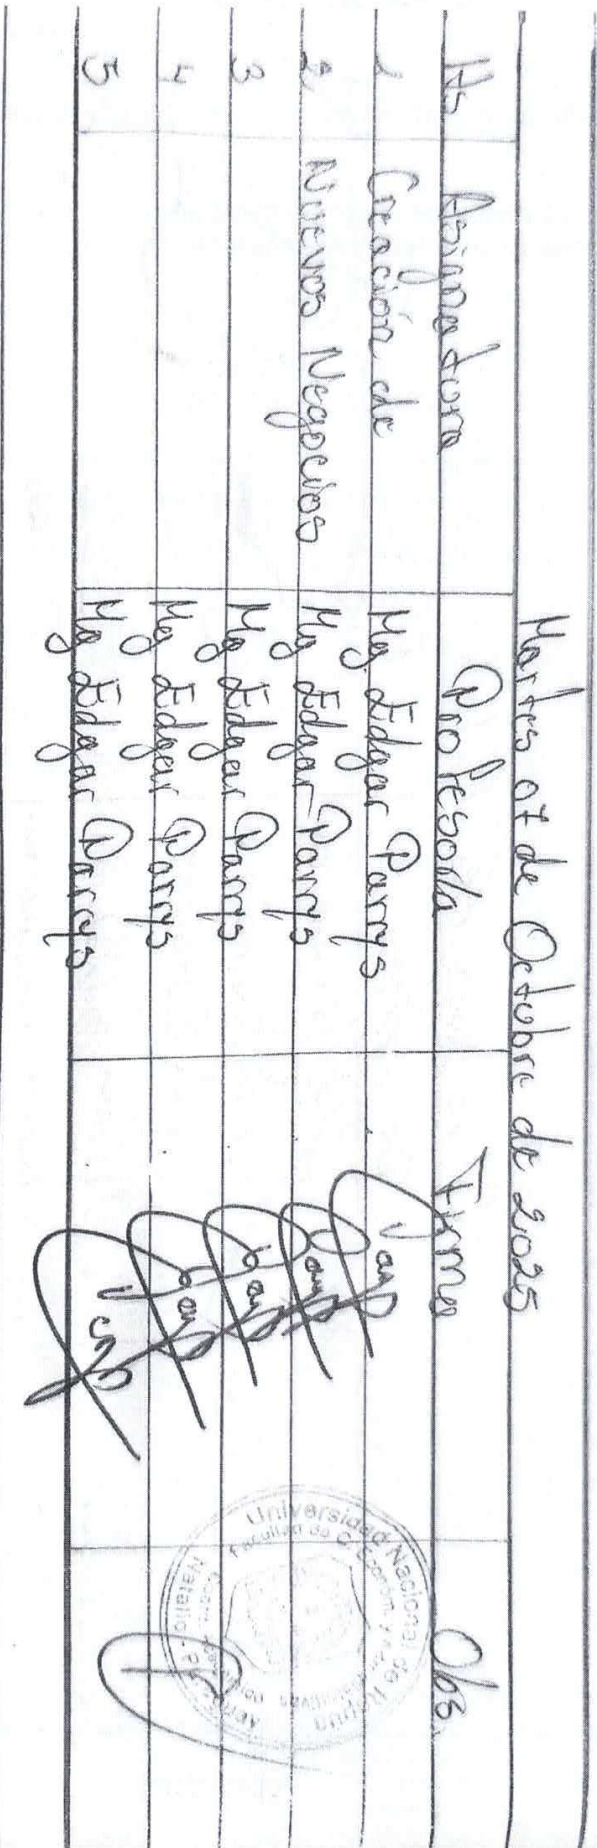 Martes 07 de Octubre de 2025
Hs Asignatura Profesor/a Firma Obs.
1 Creación de Mg Edgar Parrys
2 Nuevos Negocios Mg Edgar Parrys
3 Mg Edgar Parrys
4 Mg Edgar Parrys
5 Mg Edgar Parrys
Universidad Nacional de Itapúa
Facultad de C. Económ. y Administrativas
Natalio - Py